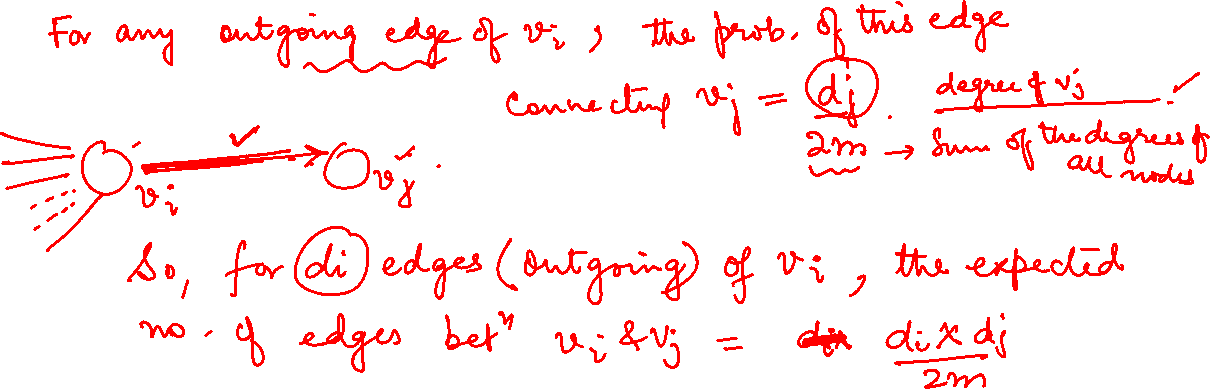 For any outgoing edge of vi, the prob. of this edge
connecting vj = dj / 2m . degree of vj
→ Sum of the degrees of all nodes
vi vj
So, for di edges (outgoing) of vi, the expected
no. of edges betⁿ vi & vj = di x dj / 2m